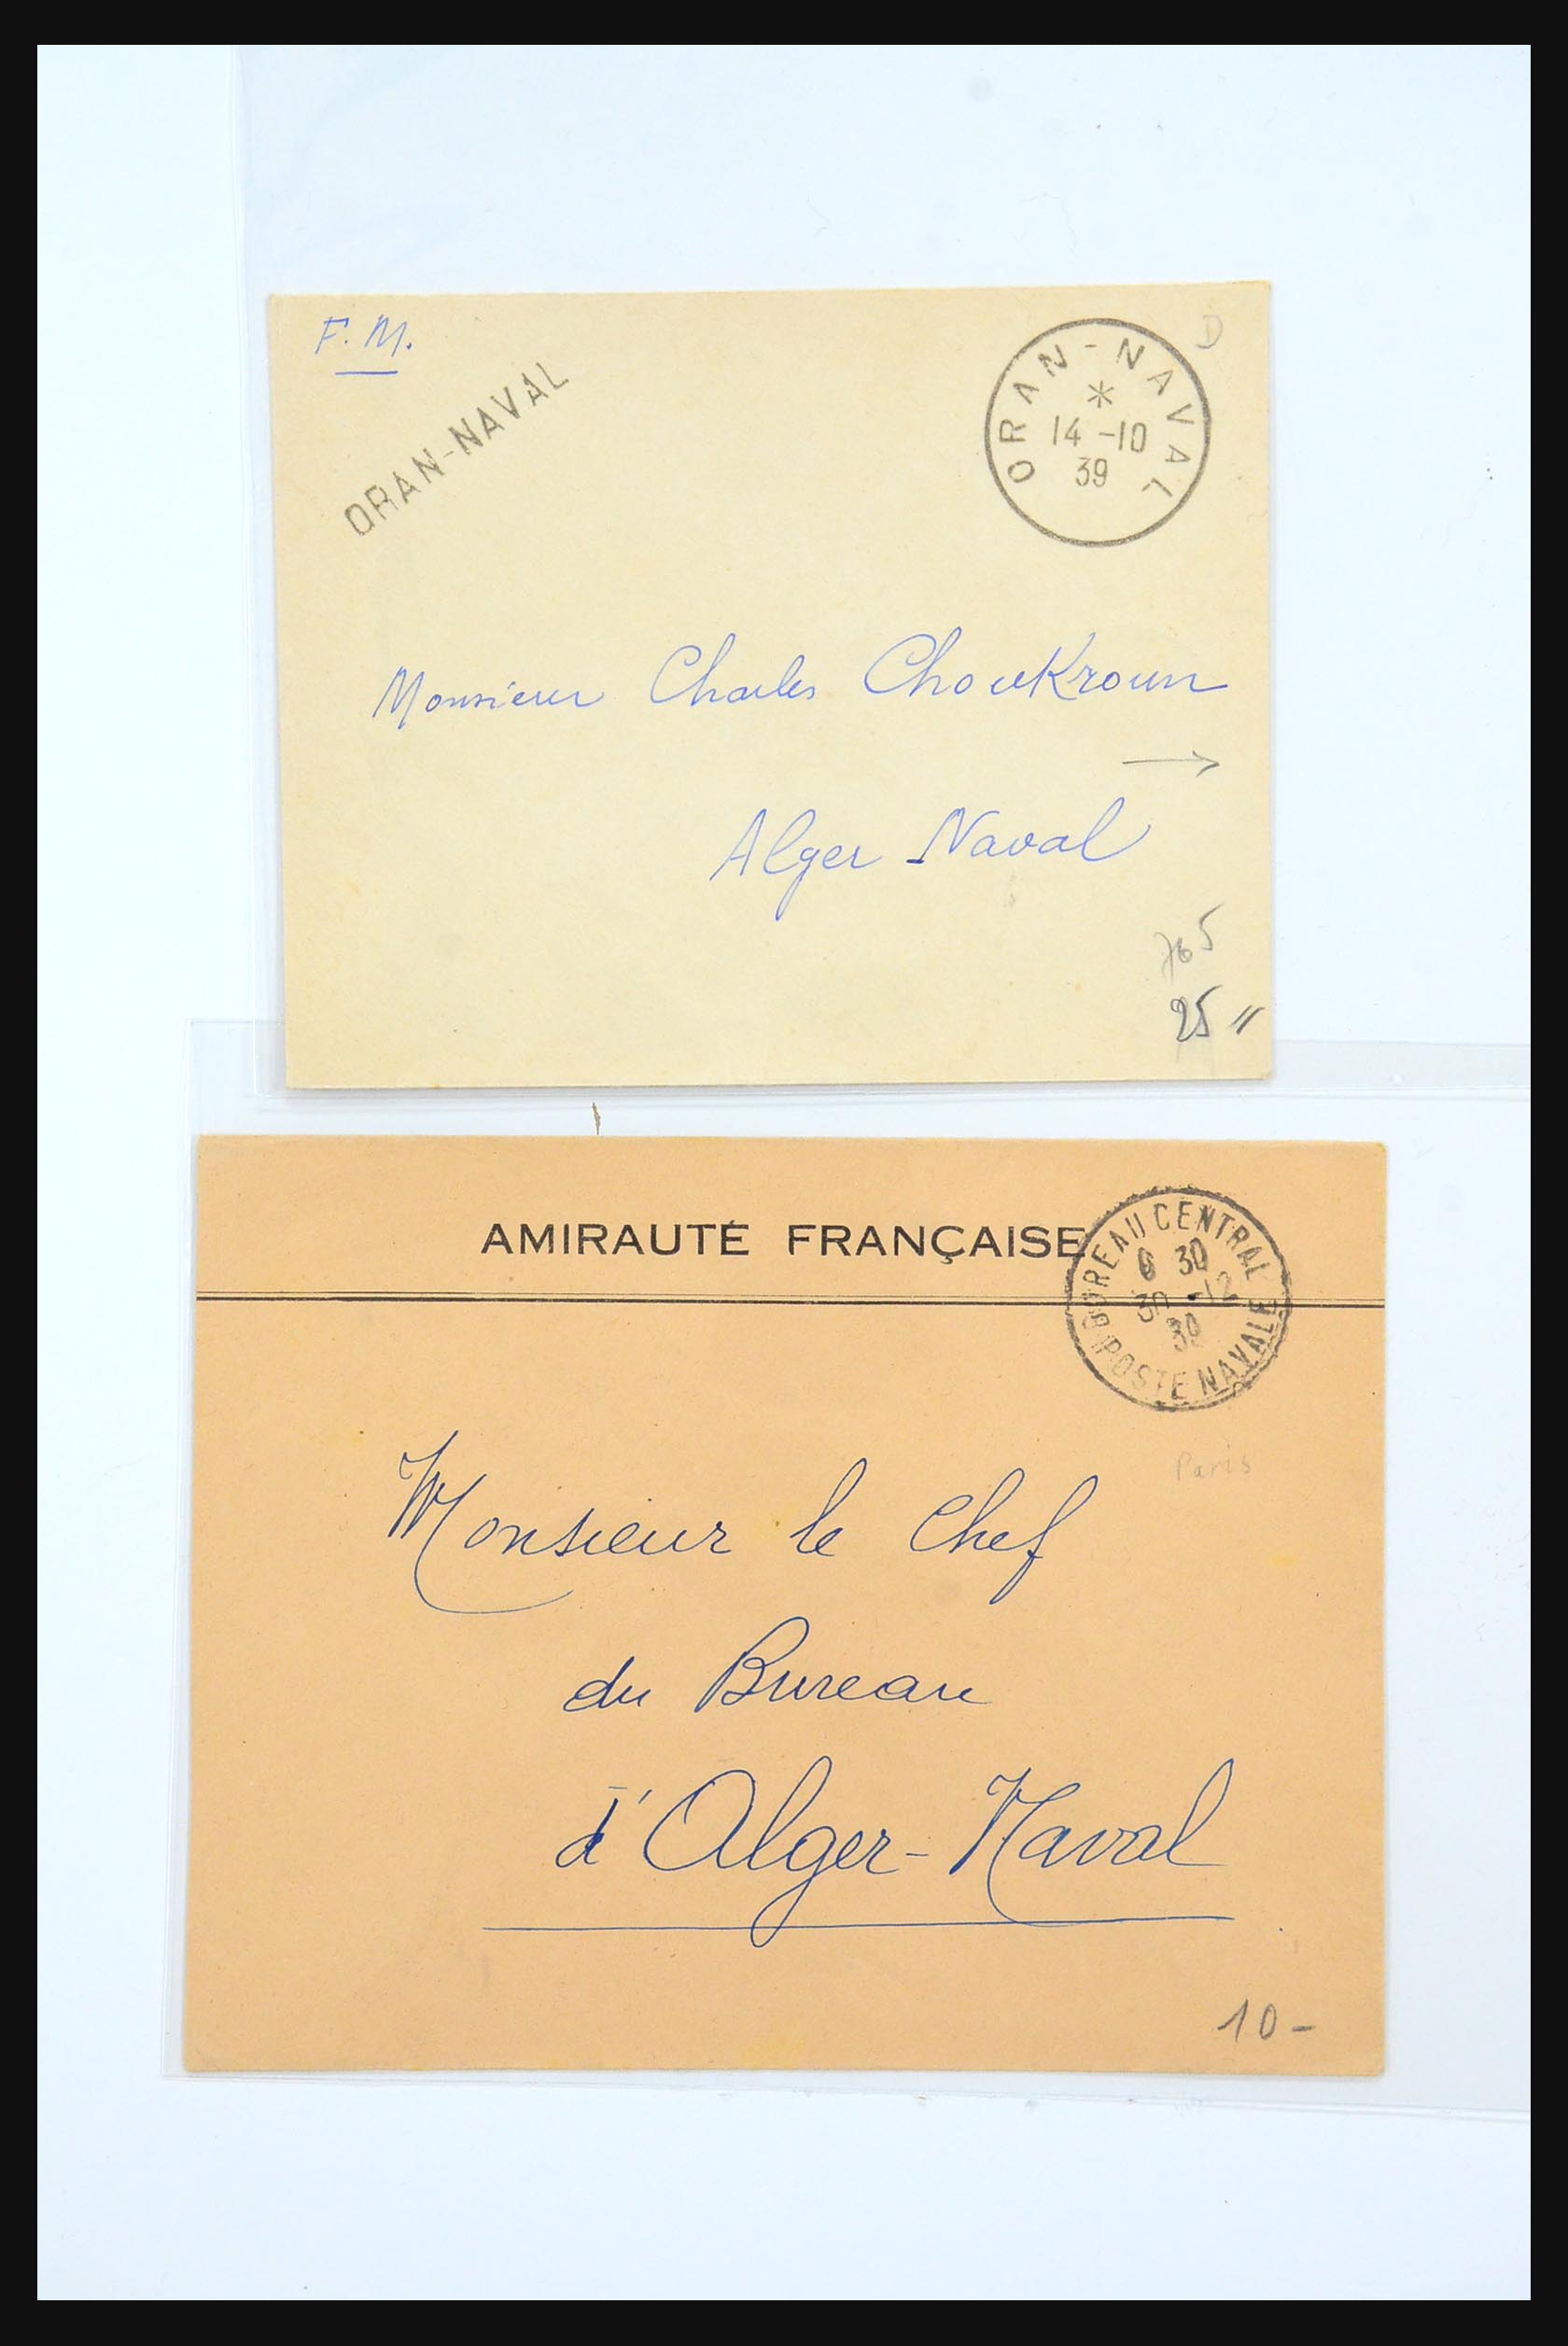 F. M.
D
ORAN-NAVAL
ORAN-NAVAL
*
14 -10
39
Monsieur Charles Choukroun
→
Alger Naval
765
25 "
AMIRAUTÉ FRANÇAISE
BUREAU CENTRAL
6 30
30 -12
39
POSTE NAVALE
Paris
Monsieur le Chef
du Bureau
d'Alger-Naval
10-